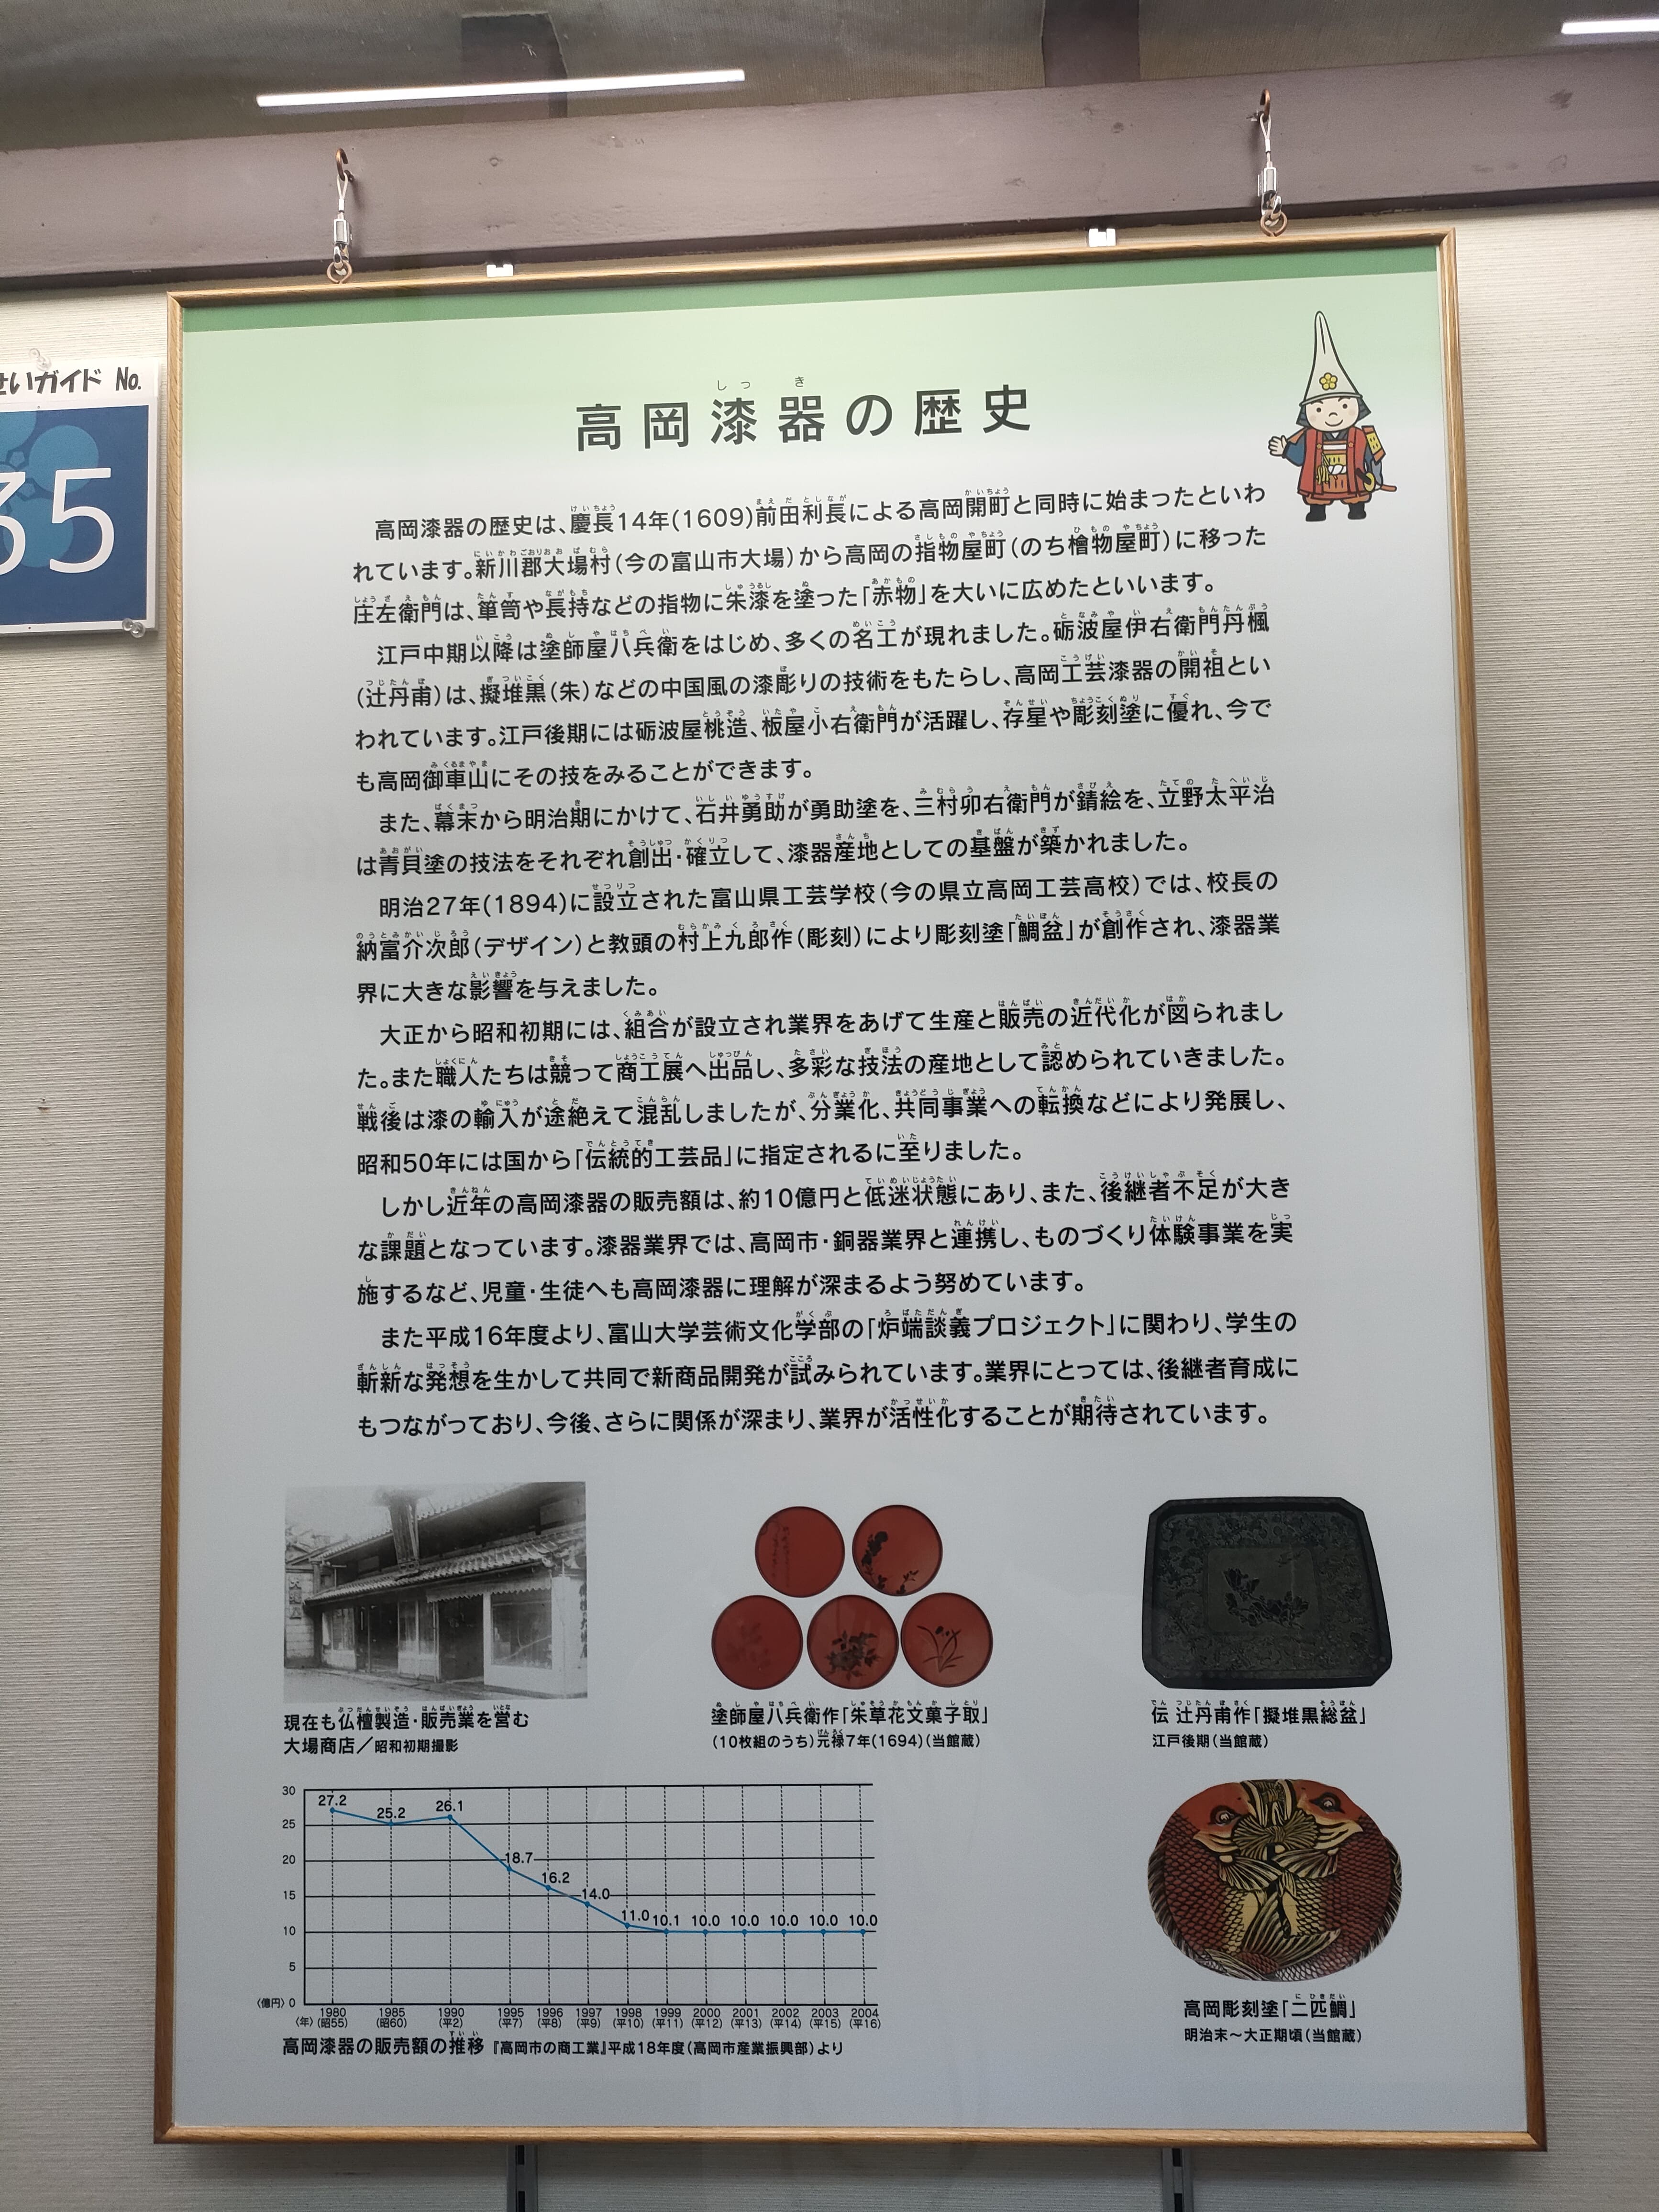 せいガイド No.
35
高岡漆器の歴史
しっき
高岡漆器の歴史は、慶長14年(1609)前田利長による高岡開町と同時に始まったといわ
れています。新川郡大場村(今の富山市大場)から高岡の指物屋町(のち檜物屋町)に移った
庄左衛門は、箪笥や長持などの指物に朱漆を塗った「赤物」を大いに広めたといいます。
江戸中期以降は塗師屋八兵衛をはじめ、多くの名工が現れました。砺波屋伊右衛門丹楓
(辻丹甫)は、擬堆黒(朱)などの中国風の漆彫りの技術をもたらし、高岡工芸漆器の開祖とい
われています。江戸後期には砺波屋桃造、板屋小右衛門が活躍し、存星や彫刻塗に優れ、今で
も高岡御車山にその技をみることができます。
また、幕末から明治期にかけて、石井勇助が勇助塗を、三村卯右衛門が錆絵を、立野太平治
は青貝塗の技法をそれぞれ創出・確立して、漆器産地としての基盤が築かれました。
明治27年(1894)に設立された富山県工芸学校(今の県立高岡工芸高校)では、校長の
納富介次郎(デザイン)と教頭の村上九郎作(彫刻)により彫刻塗「鯛盆」が創作され、漆器業
界に大きな影響を与えました。
大正から昭和初期には、組合が設立され業界をあげて生産と販売の近代化が図られまし
た。また職人たちは競って商工展へ出品し、多彩な技法の産地として認められていきました。
戦後は漆の輸入が途絶えて混乱しましたが、分業化、共同事業への転換などにより発展し、
昭和50年には国から「伝統的工芸品」に指定されるに至りました。
しかし近年の高岡漆器の販売額は、約10億円と低迷状態にあり、また、後継者不足が大き
な課題となっています。漆器業界では、高岡市・銅器業界と連携し、ものづくり体験事業を実
施するなど、児童・生徒へも高岡漆器に理解が深まるよう努めています。
また平成16年度より、富山大学芸術文化学部の「炉端談義プロジェクト」に関わり、学生の
斬新な発想を生かして共同で新商品開発が試みられています。業界にとっては、後継者育成に
もつながっており、今後、さらに関係が深まり、業界が活性化することが期待されています。
現在も仏壇製造・販売業を営む
大場商店／昭和初期撮影
塗師屋八兵衛作「朱草花文菓子取」
(10枚組のうち)元禄7年(1694)(当館蔵)
伝 辻丹甫作「擬堆黒総盆」
江戸後期(当館蔵)
30
25
20
15
10
5
〈億円〉0
27.2 25.2 26.1 18.7 16.2 14.0 11.0 10.1 10.0 10.0 10.0 10.0 10.0
1980 1985 1990 1995 1996 1997 1998 1999 2000 2001 2002 2003 2004
〈年〉(昭55) (昭60) (平2) (平7) (平8) (平9) (平10) (平11) (平12) (平13) (平14) (平15) (平16)
高岡漆器の販売額の推移 『高岡市の商工業』平成18年度(高岡市産業振興部)より
高岡彫刻塗「二匹鯛」
明治末～大正期頃(当館蔵)